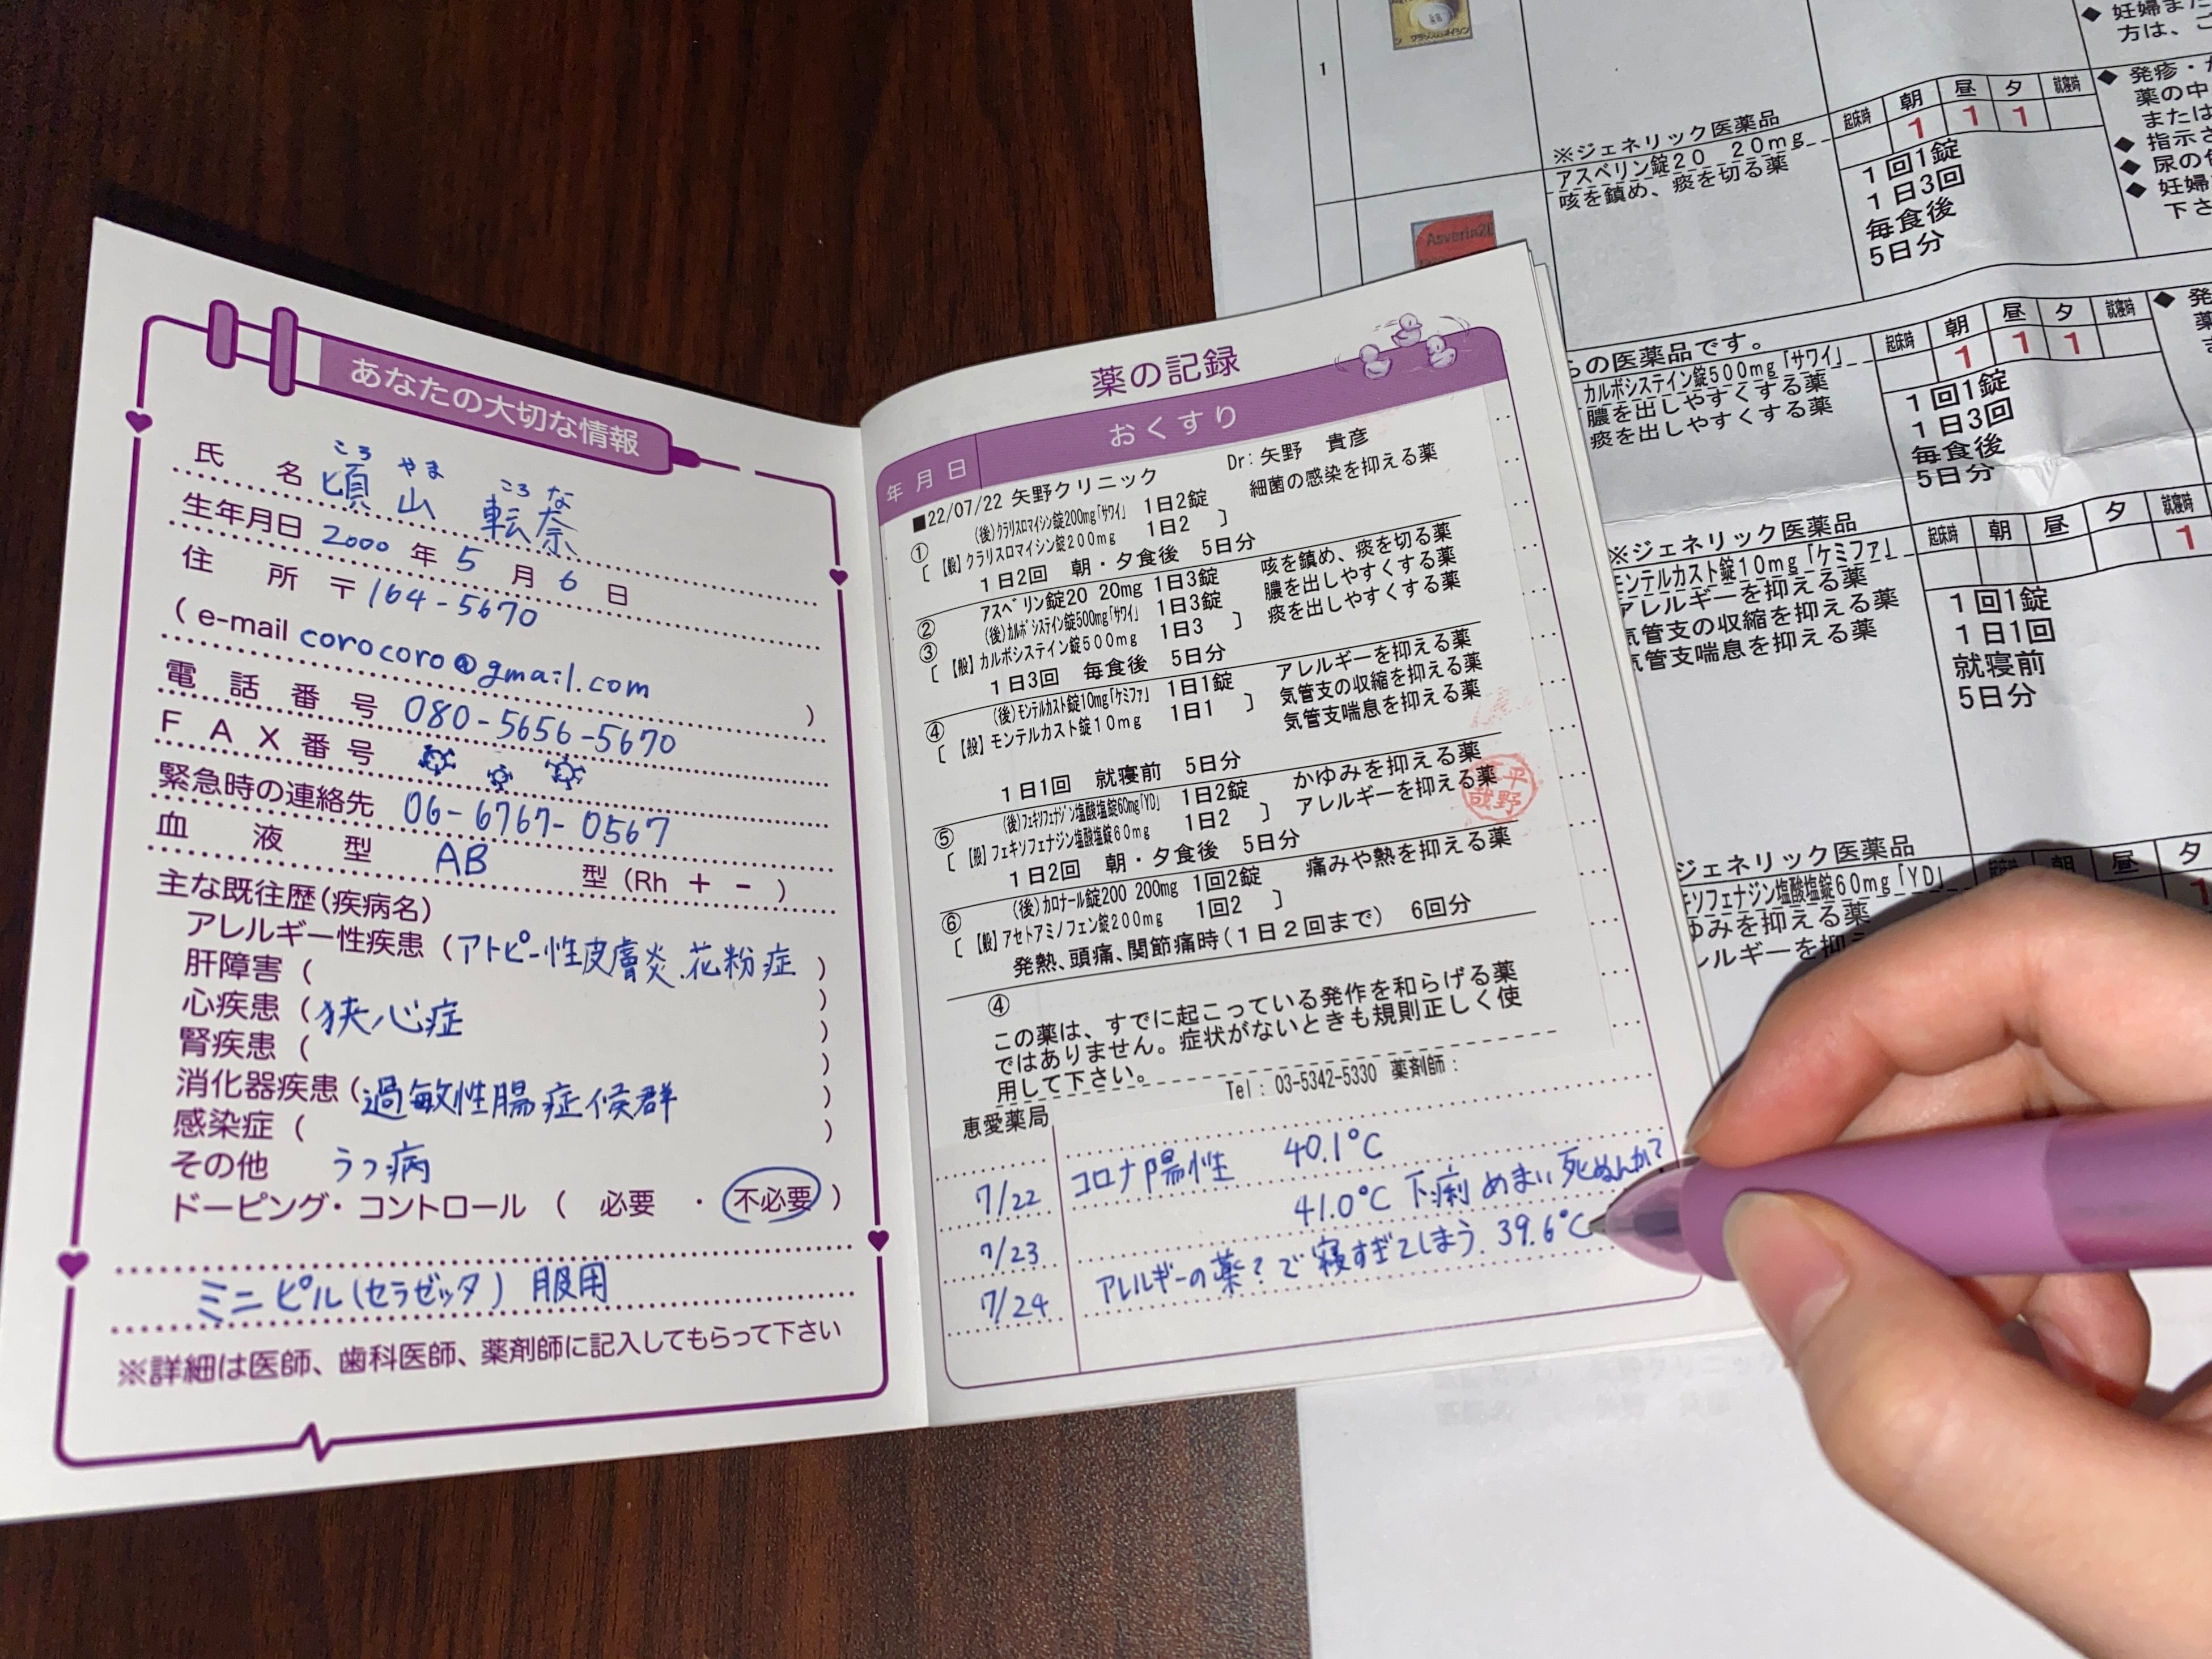 あなたの大切な情報
ころ やま ころ な
氏名 頃山 転奈
生年月日 2000年5月6日
住所 〒164-5670
(e-mail corocoro@gmail.com)
電話番号 080-5656-5670
FAX番号
緊急時の連絡先 06-6767-0567
血液型 AB 型(Rh + -)
主な既往歴(疾病名)
アレルギー性疾患(アトピー性皮膚炎、花粉症)
肝障害( )
心疾患(狭心症)
腎疾患( )
消化器疾患(過敏性腸症候群)
感染症( )
その他 うつ病
ドーピング・コントロール(必要・不必要)
ミニピル(セラゼッタ)服用
※詳細は医師、歯科医師、薬剤師に記入してもらって下さい
薬の記録
年月日 おくすり
■22/07/22 矢野クリニック Dr:矢野 貴彦
① (後)クラリスロマイシン錠200mg「サワイ」 1日2錠 細菌の感染を抑える薬
〔【般】クラリスロマイシン錠200mg 1日2 〕
1日2回 朝・夕食後 5日分
② アスベリン錠20 20mg 1日3錠 咳を鎮め、痰を切る薬
③ (後)カルボシステイン錠500mg「サワイ」 1日3錠 膿を出しやすくする薬
〔【般】カルボシステイン錠500mg 1日3 〕 痰を出しやすくする薬
1日3回 毎食後 5日分
④ (後)モンテルカスト錠10mg「ケミファ」 1日1錠 アレルギーを抑える薬
〔【般】モンテルカスト錠10mg 1日1 〕 気管支の収縮を抑える薬
気管支喘息を抑える薬
1日1回 就寝前 5日分
⑤ (後)フェキソフェナジン塩酸塩錠60mg「YD」 1日2錠 かゆみを抑える薬
〔【般】フェキソフェナジン塩酸塩錠60mg 1日2 〕 アレルギーを抑える薬
1日2回 朝・夕食後 5日分
⑥ (後)カロナール錠200 200mg 1回2錠 痛みや熱を抑える薬
〔【般】アセトアミノフェン錠200mg 1回2 〕
発熱、頭痛、関節痛時(1日2回まで) 6回分
④
この薬は、すでに起こっている発作を和らげる薬
ではありません。症状がないときも規則正しく使
用して下さい。
恵愛薬局 Tel: 03-5342-5330 薬剤師:
7/22 コロナ陽性 40.1°C
7/23 41.0°C 下痢 めまい 死ぬんか?
7/24 アレルギーの薬?で寝すぎてしまう. 39.6°C
1
※ジェネリック医薬品
アスベリン錠20 20mg
咳を鎮め、痰を切る薬
起床時 朝 昼 夕 就寝時
1 1 1
1回1錠
1日3回
毎食後
5日分
Asverin20
らの医薬品です。
カルボシステイン錠500mg「サワイ」
膿を出しやすくする薬
痰を出しやすくする薬
起床時 朝 昼 夕 就寝時
1 1 1
1回1錠
1日3回
毎食後
5日分
※ジェネリック医薬品
モンテルカスト錠10mg「ケミファ」
アレルギーを抑える薬
気管支の収縮を抑える薬
気管支喘息を抑える薬
起床時 朝 昼 夕 就寝時
1
1回1錠
1日1回
就寝前
5日分
ジェネリック医薬品
キソフェナジン塩酸塩錠60mg「YD」
ゆみを抑える薬
レルギーを抑え
朝 昼 夕
1
◆ 妊婦また
方は、こ
◆ 発疹・
薬の中
または
◆ 指示さ
◆ 尿の
◆ 妊婦
下さ